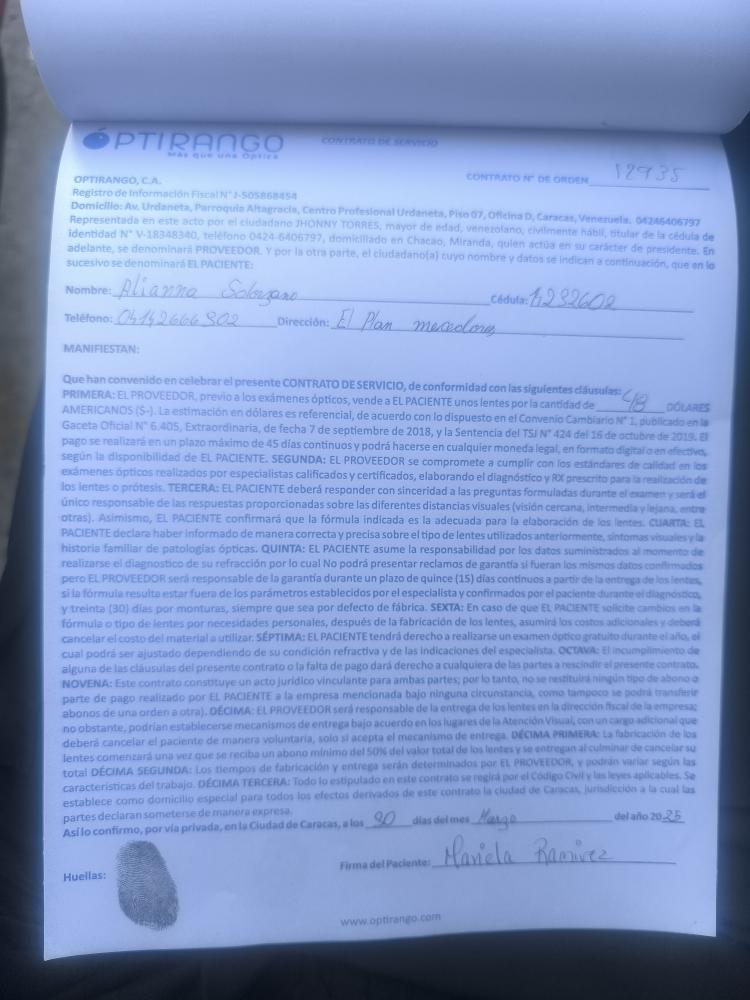 OPTIRANGO
Más que una Óptica
CONTRATO DE SERVICIO
CONTRATO N° DE ORDEN 12935
OPTIRANGO, C.A.
Registro de Información Fiscal N° J-505868454
Domicilio: Av. Urdaneta, Parroquia Altagracia, Centro Profesional Urdaneta, Piso 07, Oficina D, Caracas, Venezuela. 04246406797
Representada en este acto por el ciudadano JHONNY TORRES, mayor de edad, venezolano, civilmente hábil, titular de la cédula de
identidad N° V-18348340, teléfono 0424-6406797, domiciliado en Chacao, Miranda, quien actúa en su carácter de presidente. En
adelante, se denominará PROVEEDOR. Y por la otra parte, el ciudadano(a) cuyo nombre y datos se indican a continuación, que en lo
sucesivo se denominará EL PACIENTE:
Nombre: Alianna Solorzano Cédula:
Teléfono: Dirección: El Plan
MANIFIESTAN:
Que han convenido en celebrar el presente CONTRATO DE SERVICIO, de conformidad con las siguientes cláusulas:
PRIMERA: EL PROVEEDOR, previo a los exámenes ópticos, vende a EL PACIENTE unos lentes por la cantidad de 48 DÓLARES
AMERICANOS ($-). La estimación en dólares es referencial, de acuerdo con lo dispuesto en el Convenio Cambiario N° 1, publicado en la
Gaceta Oficial N° 6.405, Extraordinaria, de fecha 7 de septiembre de 2018, y la Sentencia del TSJ N° 424 del 16 de octubre de 2019. El
pago se realizará en un plazo máximo de 45 días continuos y podrá hacerse en cualquier moneda legal, en formato digital o en efectivo,
según la disponibilidad de EL PACIENTE. SEGUNDA: EL PROVEEDOR se compromete a cumplir con los estándares de calidad en los
exámenes ópticos realizados por especialistas calificados y certificados, elaborando el diagnóstico y RX prescrito para la realización de
los lentes o prótesis. TERCERA: EL PACIENTE deberá responder con sinceridad a las preguntas formuladas durante el examen y será el
único responsable de las respuestas proporcionadas sobre las diferentes distancias visuales (visión cercana, intermedia y lejana, entre
otras). Asimismo, EL PACIENTE confirmará que la fórmula indicada es la adecuada para la elaboración de los lentes. CUARTA: EL
PACIENTE declara haber informado de manera correcta y precisa sobre el tipo de lentes utilizados anteriormente, síntomas visuales y la
historia familiar de patologías ópticas. QUINTA: EL PACIENTE asume la responsabilidad por los datos suministrados al momento de
realizarse el diagnostico de su refracción por lo cual No podrá presentar reclamos de garantía si fueran los mismos datos confirmados
pero EL PROVEEDOR será responsable de la garantía durante un plazo de quince (15) días continuos a partir de la entrega de los lentes,
si la fórmula resulta estar fuera de los parámetros establecidos por el especialista y confirmados por el paciente durante el diagnóstico,
y treinta (30) días por monturas, siempre que sea por defecto de fábrica. SEXTA: En caso de que EL PACIENTE solicite cambios en la
fórmula o tipo de lentes por necesidades personales, después de la fabricación de los lentes, asumirá los costos adicionales y deberá
cancelar el costo del material a utilizar. SÉPTIMA: EL PACIENTE tendrá derecho a realizarse un examen óptico gratuito durante el año, el
cual podrá ser ajustado dependiendo de su condición refractiva y de las indicaciones del especialista. OCTAVA: El incumplimiento de
alguna de las cláusulas del presente contrato o la falta de pago dará derecho a cualquiera de las partes a rescindir el presente contrato.
NOVENA: Este contrato constituye un acto jurídico vinculante para ambas partes; por lo tanto, no se restituirá ningún tipo de abono o
parte de pago realizado por EL PACIENTE a la empresa mencionada bajo ninguna circunstancia, como tampoco se podrá transferir
abonos de una orden a otra). DÉCIMA: EL PROVEEDOR será responsable de la entrega de los lentes en la dirección fiscal de la empresa;
no obstante, podrían establecerse mecanismos de entrega bajo acuerdo en los lugares de la Atención Visual, con un cargo adicional que
deberá cancelar el paciente de manera voluntaria, solo si acepta el mecanismo de entrega. DÉCIMA PRIMERA: La fabricación de los
lentes comenzará una vez que se reciba un abono mínimo del 50% del valor total de los lentes y se entregan al culminar de cancelar su
total DÉCIMA SEGUNDA: Los tiempos de fabricación y entrega serán determinados por EL PROVEEDOR, y podrán variar según las
características del trabajo. DÉCIMA TERCERA: Todo lo estipulado en este contrato se regirá por el Código Civil y las leyes aplicables. Se
establece como domicilio especial para todos los efectos derivados de este contrato la ciudad de Caracas, jurisdicción a la cual las
partes declaran someterse de manera expresa.
Así lo confirmo, por vía privada, en la Ciudad de Caracas, a los días del mes Marzo del año 2025
Huellas:
Firma del Paciente: Mariela Ramirez
www.optirango.com